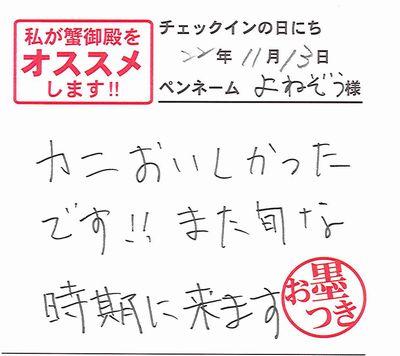 私が蟹御殿を
オススメ
します!!
チェックインの日にち
22年11月13日
ペンネーム よねぞう様
カニおいしかった
です!! また旬な
時期に来ます
お墨つき